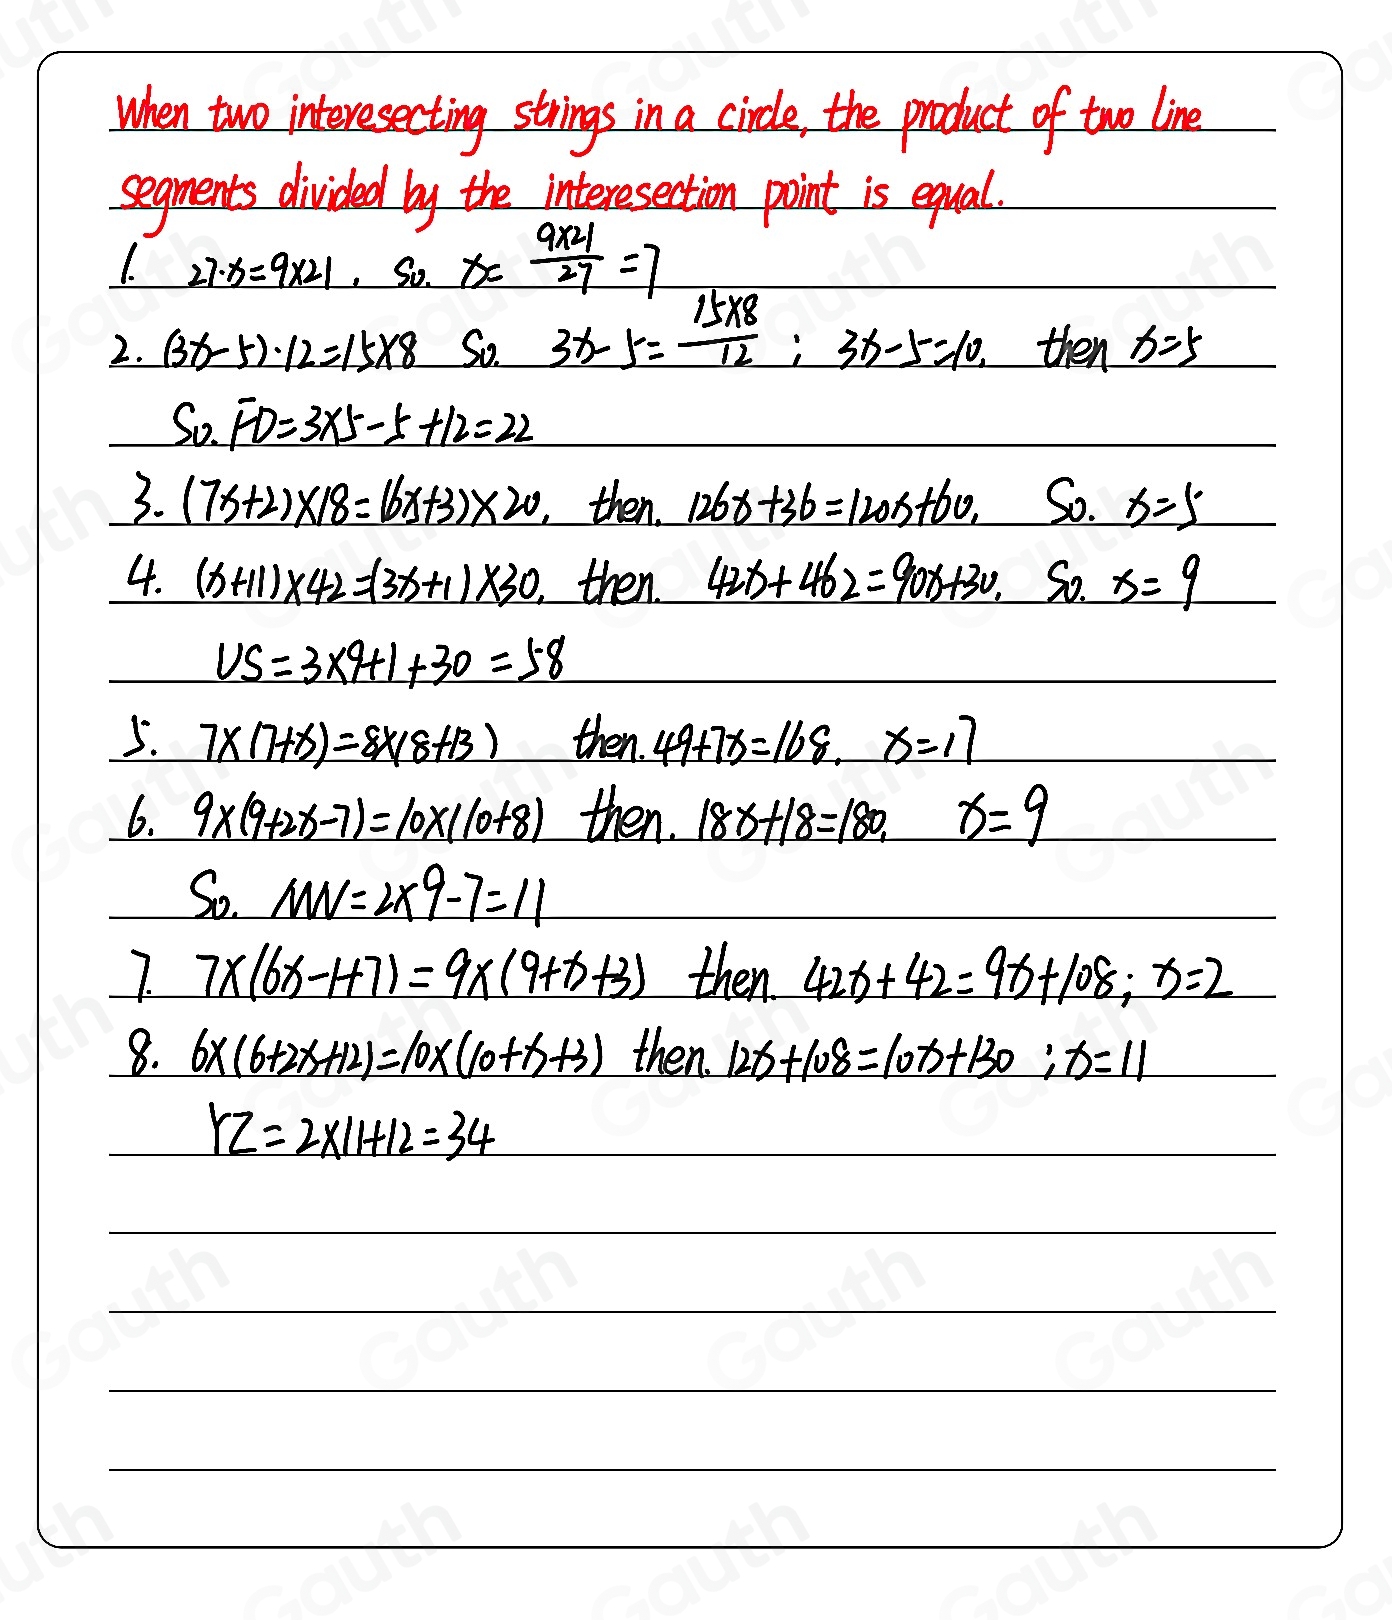 When two interesecting strings in a circle, the product of two line
segments divided by the interesection point is equal.
1. 27·x=9×21, So. x= 9×21/27 =7
2. (3x-5)·12=15×8 So. 3x-5= 15×8/12 ; 3x-5=10, then x=5
So. FD=3×5-5+12=22
3. (7x+2)×18=(6x+3)×20, then. 126x+36=120x+60, So. x=5
4. (x+11)×42=(3x+1)×30, then. 42x+462=90x+30, So. x=9
US=3×9+1+30=58
5. 7×(7+x)=8×(8+13) then. 49+7x=168, x=17
6. 9×(9+2x-7)=10×(10+8) then. 18x+18=180, x=9
So. MN=2×9-7=11
7. 7×(6x-1+7)=9×(9+x+3) then. 42x+42=9x+108; x=2
8. 6×(6+2x+12)=10×(10+x+3) then. 12x+108=10x+130; x=11
YZ=2×11+12=34
Gauth